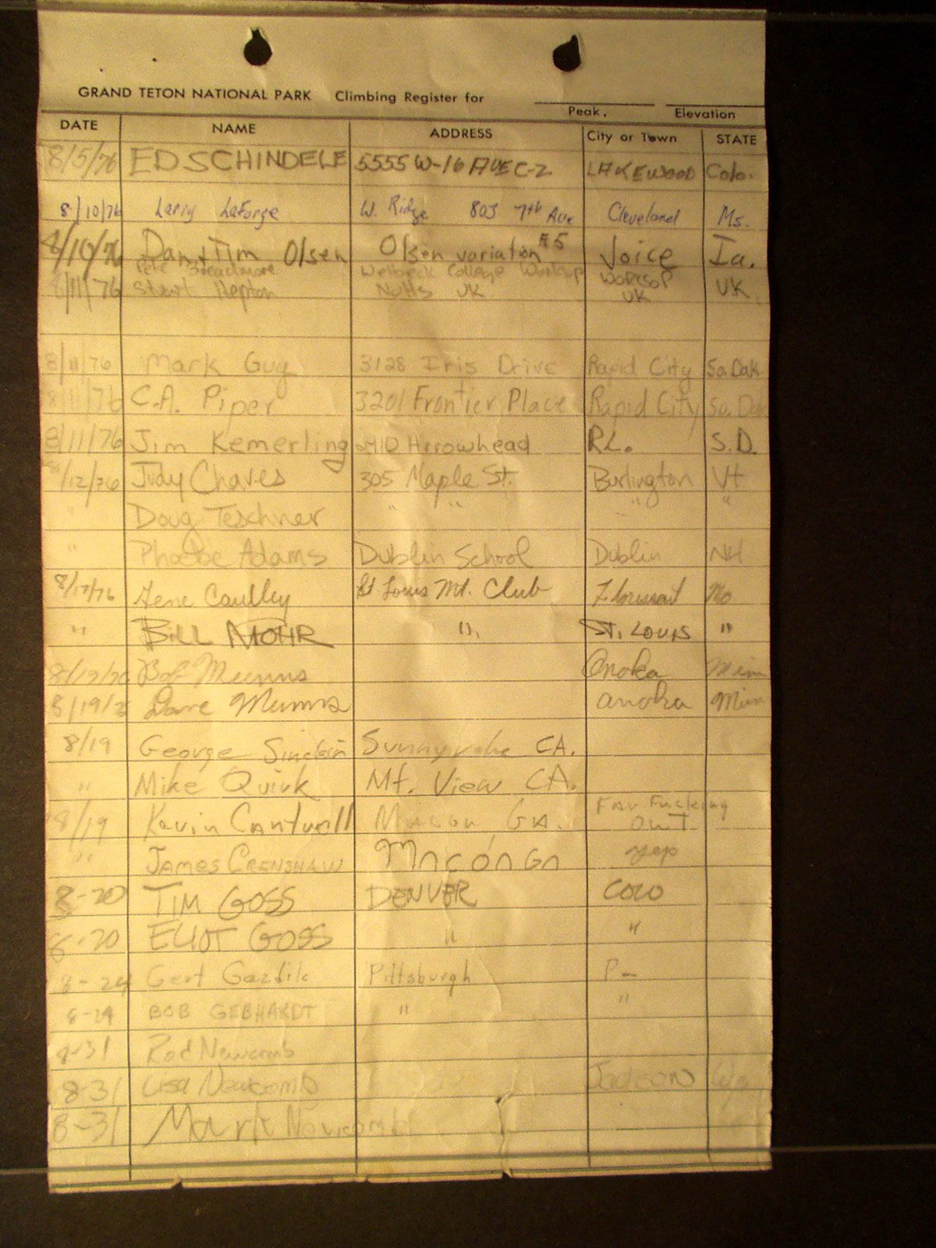 GRAND TETON NATIONAL PARK Climbing Register for
Peak, Elevation
DATE NAME ADDRESS City or Town STATE
8/5/76 ED SCHINDELE 5555 W-16 AVE C-2 LAKEWOOD Colo.
8/10/76 Larry LaForge W. Ridge 803 7th Ave Cleveland Ms.
8/10/76 Dan + Tim Olsen Olsen variation #5 Joice Ia.
Pete Welbeck College Worksop WORKSOP
8/11/76 Stewart Hepton Notts UK UK UK.
8/11/76 Mark Guy 3128 Iris Drive Rapid City So. Dak.
8/11/76 C.A. Piper 3201 Frontier Place Rapid City So. Dak
8/11/76 Jim Kemerling Arrowhead S.D.
8/12/76 Judy Chaves 305 Maple St. Burlington Vt
" Doug Teschner " " " "
" Phoebe Adams Dublin School Dublin NH
8/17/76 Gene Caulley St Louis Mt. Club Florissant Mo
" BILL MOHR " ST. LOUIS "
8/19/76 Bob Munns Anoka Minn
8/19/76 Dave Munns anoka Minn
8/19 George Sinclair Sunnyvale CA.
" Mike Quirk Mt. View CA.
8/19 Kevin Cantwell Macon GA. FAr Fucking OUT
" JAMES CRENSHAW Macon GA yep
8-20 TIM GOSS DENVER COLO
8-20 ELIOT GOSS " "
8-24 Gert Pittsburgh P-
8-24 BOB GEBHARDT " "
8-31 Rod Newcomb
8-31 Lisa Newcomb Jackson Wy
8-31 Mark Newcomb